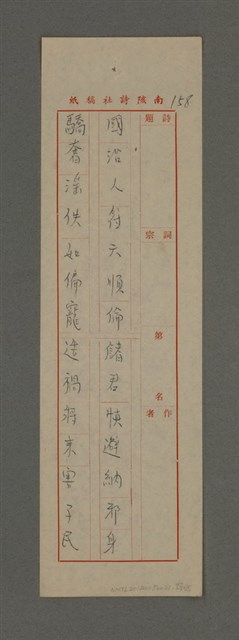 南陔詩社稿紙
158
詩題
詞宗
第 名
作者
國治人 六順倫儲君 避納邪身
驕奢淫佚如偏寵造禍將來害子民